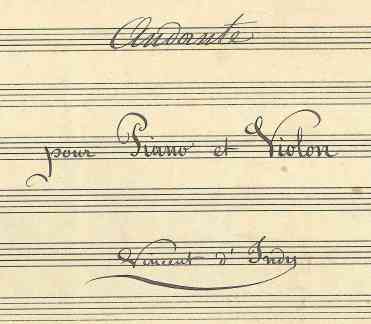 Andante
pour Piano et Violon
Vincent d'Indy